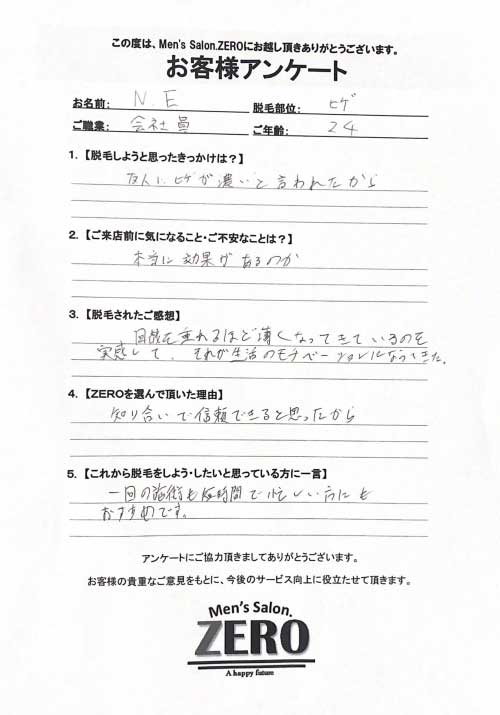 この度は、Men's Salon.ZEROにお越し頂きありがとうございます。
お客様アンケート
お名前: N.E 脱毛部位: ヒゲ
ご職業: 会社員 ご年齢: 24
1.【脱毛しようと思ったきっかけは？】
友人に ヒゲが濃いと言われたから
2.【ご来店前に気になること・ご不安なことは？】
本当に効果があるのか
3.【脱毛されたご感想】
を重ねるほど薄くなってきているのを
実感して、それが生活のモチベーションになってきた。
4.【ZEROを選んで頂いた理由】
知り合いで信頼できると思ったから
5.【これから脱毛をしよう・したいと思っている方に一言】
一回の施術も短時間で忙しい方にも
おすすめです。
アンケートにご協力頂きましてありがとうございます。
お客様の貴重なご意見をもとに、今後のサービス向上に役立たせて頂きます。
Men's Salon.
ZERO
A happy future